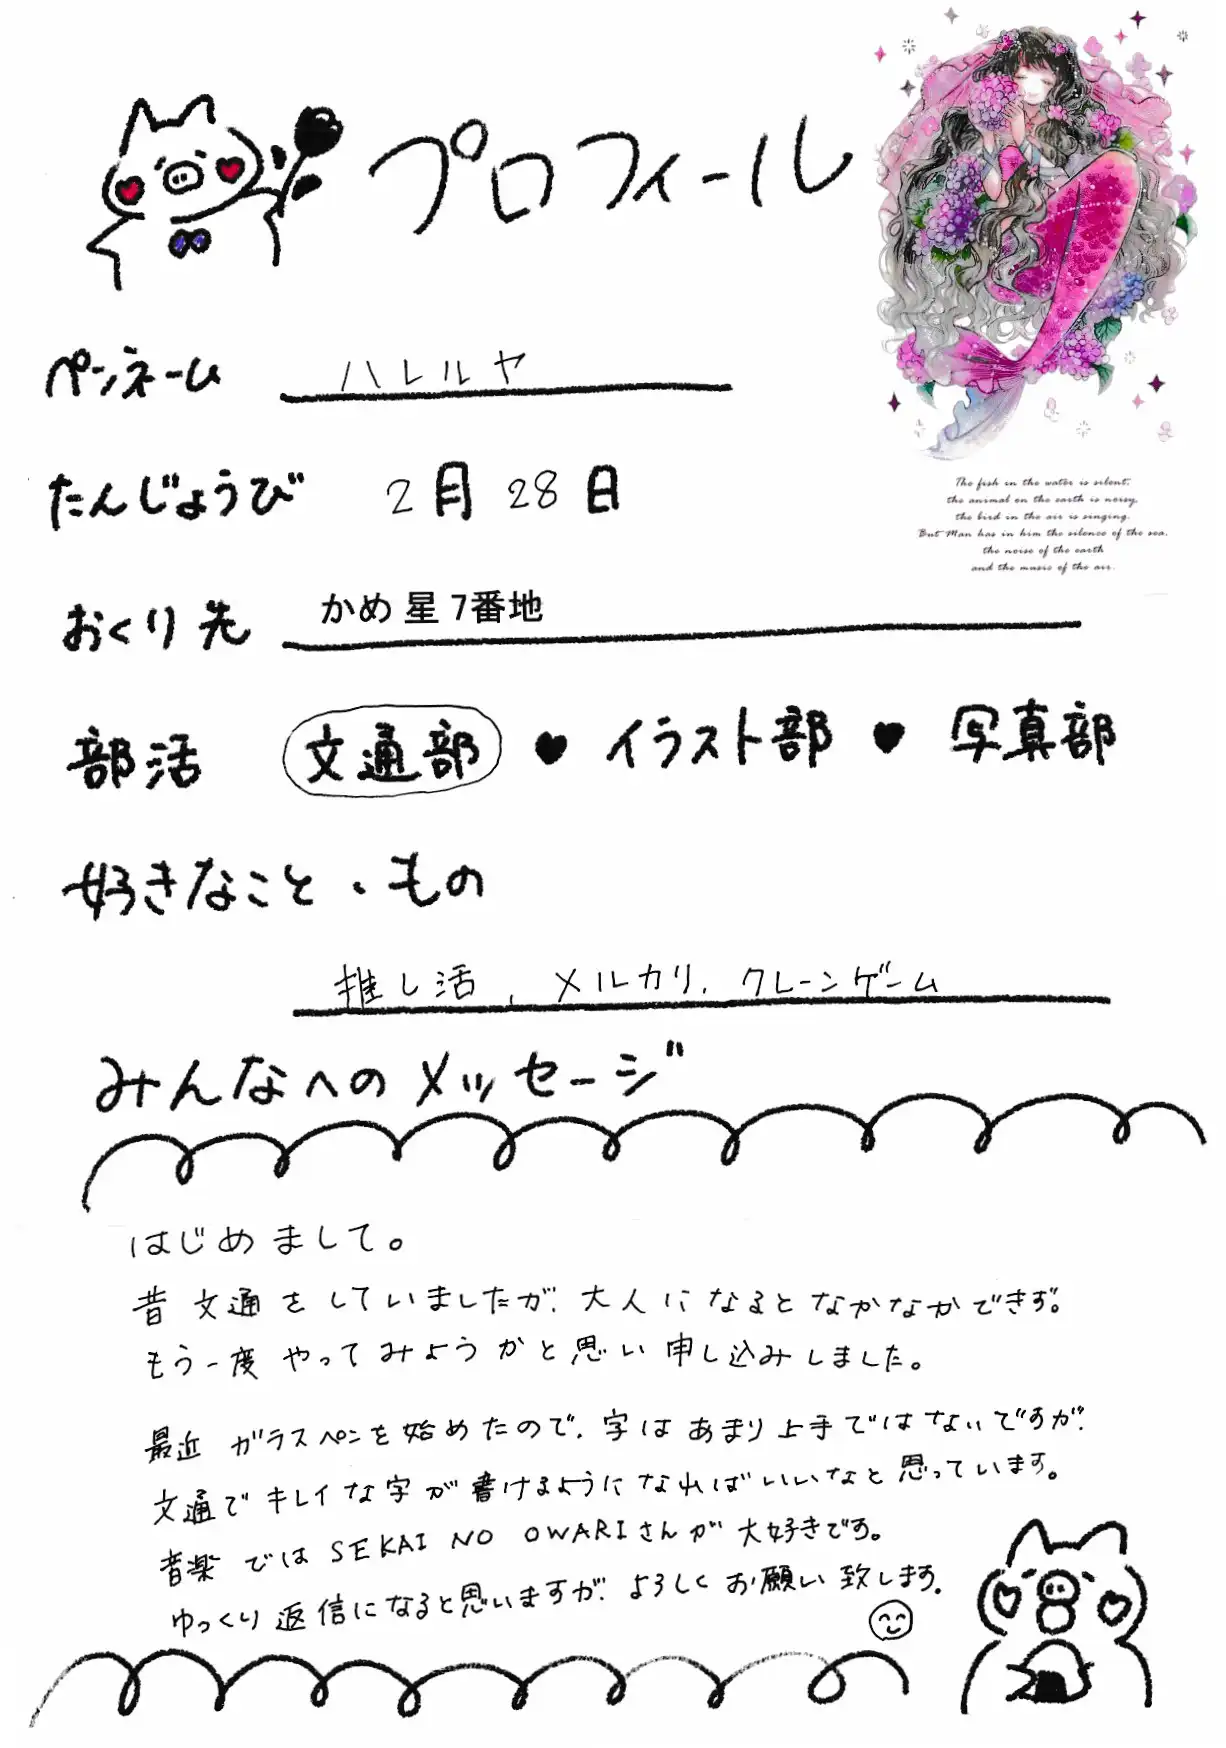 プロフィール
ペンネーム ハレルヤ
たんじょうび 2月28日
The fish in the water is silent,
the animal on the earth is noisy,
the bird in the air is singing.
But Man has in him the silence of the sea,
the noise of the earth
and the music of the air.
おくり先 かめ星7番地
部活 文通部 ♥ イラスト部 ♥ 写真部
好きなこと・もの
推し活、メルカリ、クレーンゲーム
みんなへのメッセージ
はじめまして。
昔文通をしていましたが、大人になるとなかなかできず。
もう一度やってみようかと思い申し込みしました。
最近ガラスペンを始めたので、字はあまり上手ではないですが、
文通でキレイな字が書けるようになればいいなと思っています。
音楽ではSEKAI NO OWARIさんが大好きです。
ゆっくり返信になると思いますが、よろしくお願い致します。